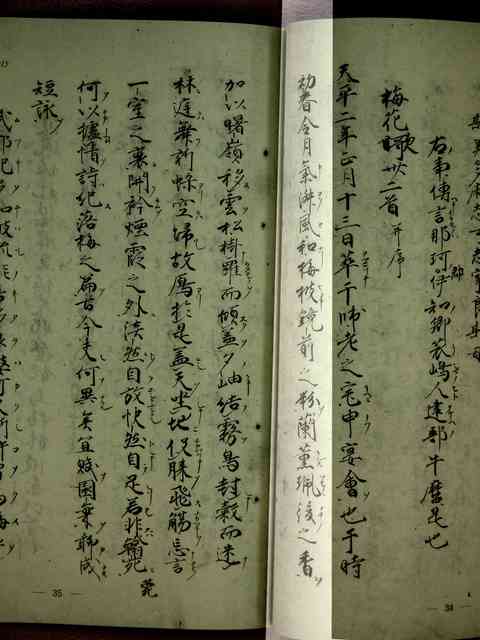 右一首傳言那珂郡伊知鄉蓑嶋人建部牛麿是也
梅花歌卅二首并序
天平二年正月十三日萃于帥老之宅申宴會也于時
初春令月氣淑風和梅披鏡前之粉蘭薰珮後之香
加以曙嶺移雲松掛羅而傾盖夕岫結霧鳥封縠而迷
林庭舞新蝶空歸故鴈於是盖天坐地促膝飛觴忘言
一室之裏開衿煙霞之外淡然自放快然自足若非翰苑
何以攄情詩紀落梅之篇古今夫何異矣宜賦園梅聊成
短詠
35
34